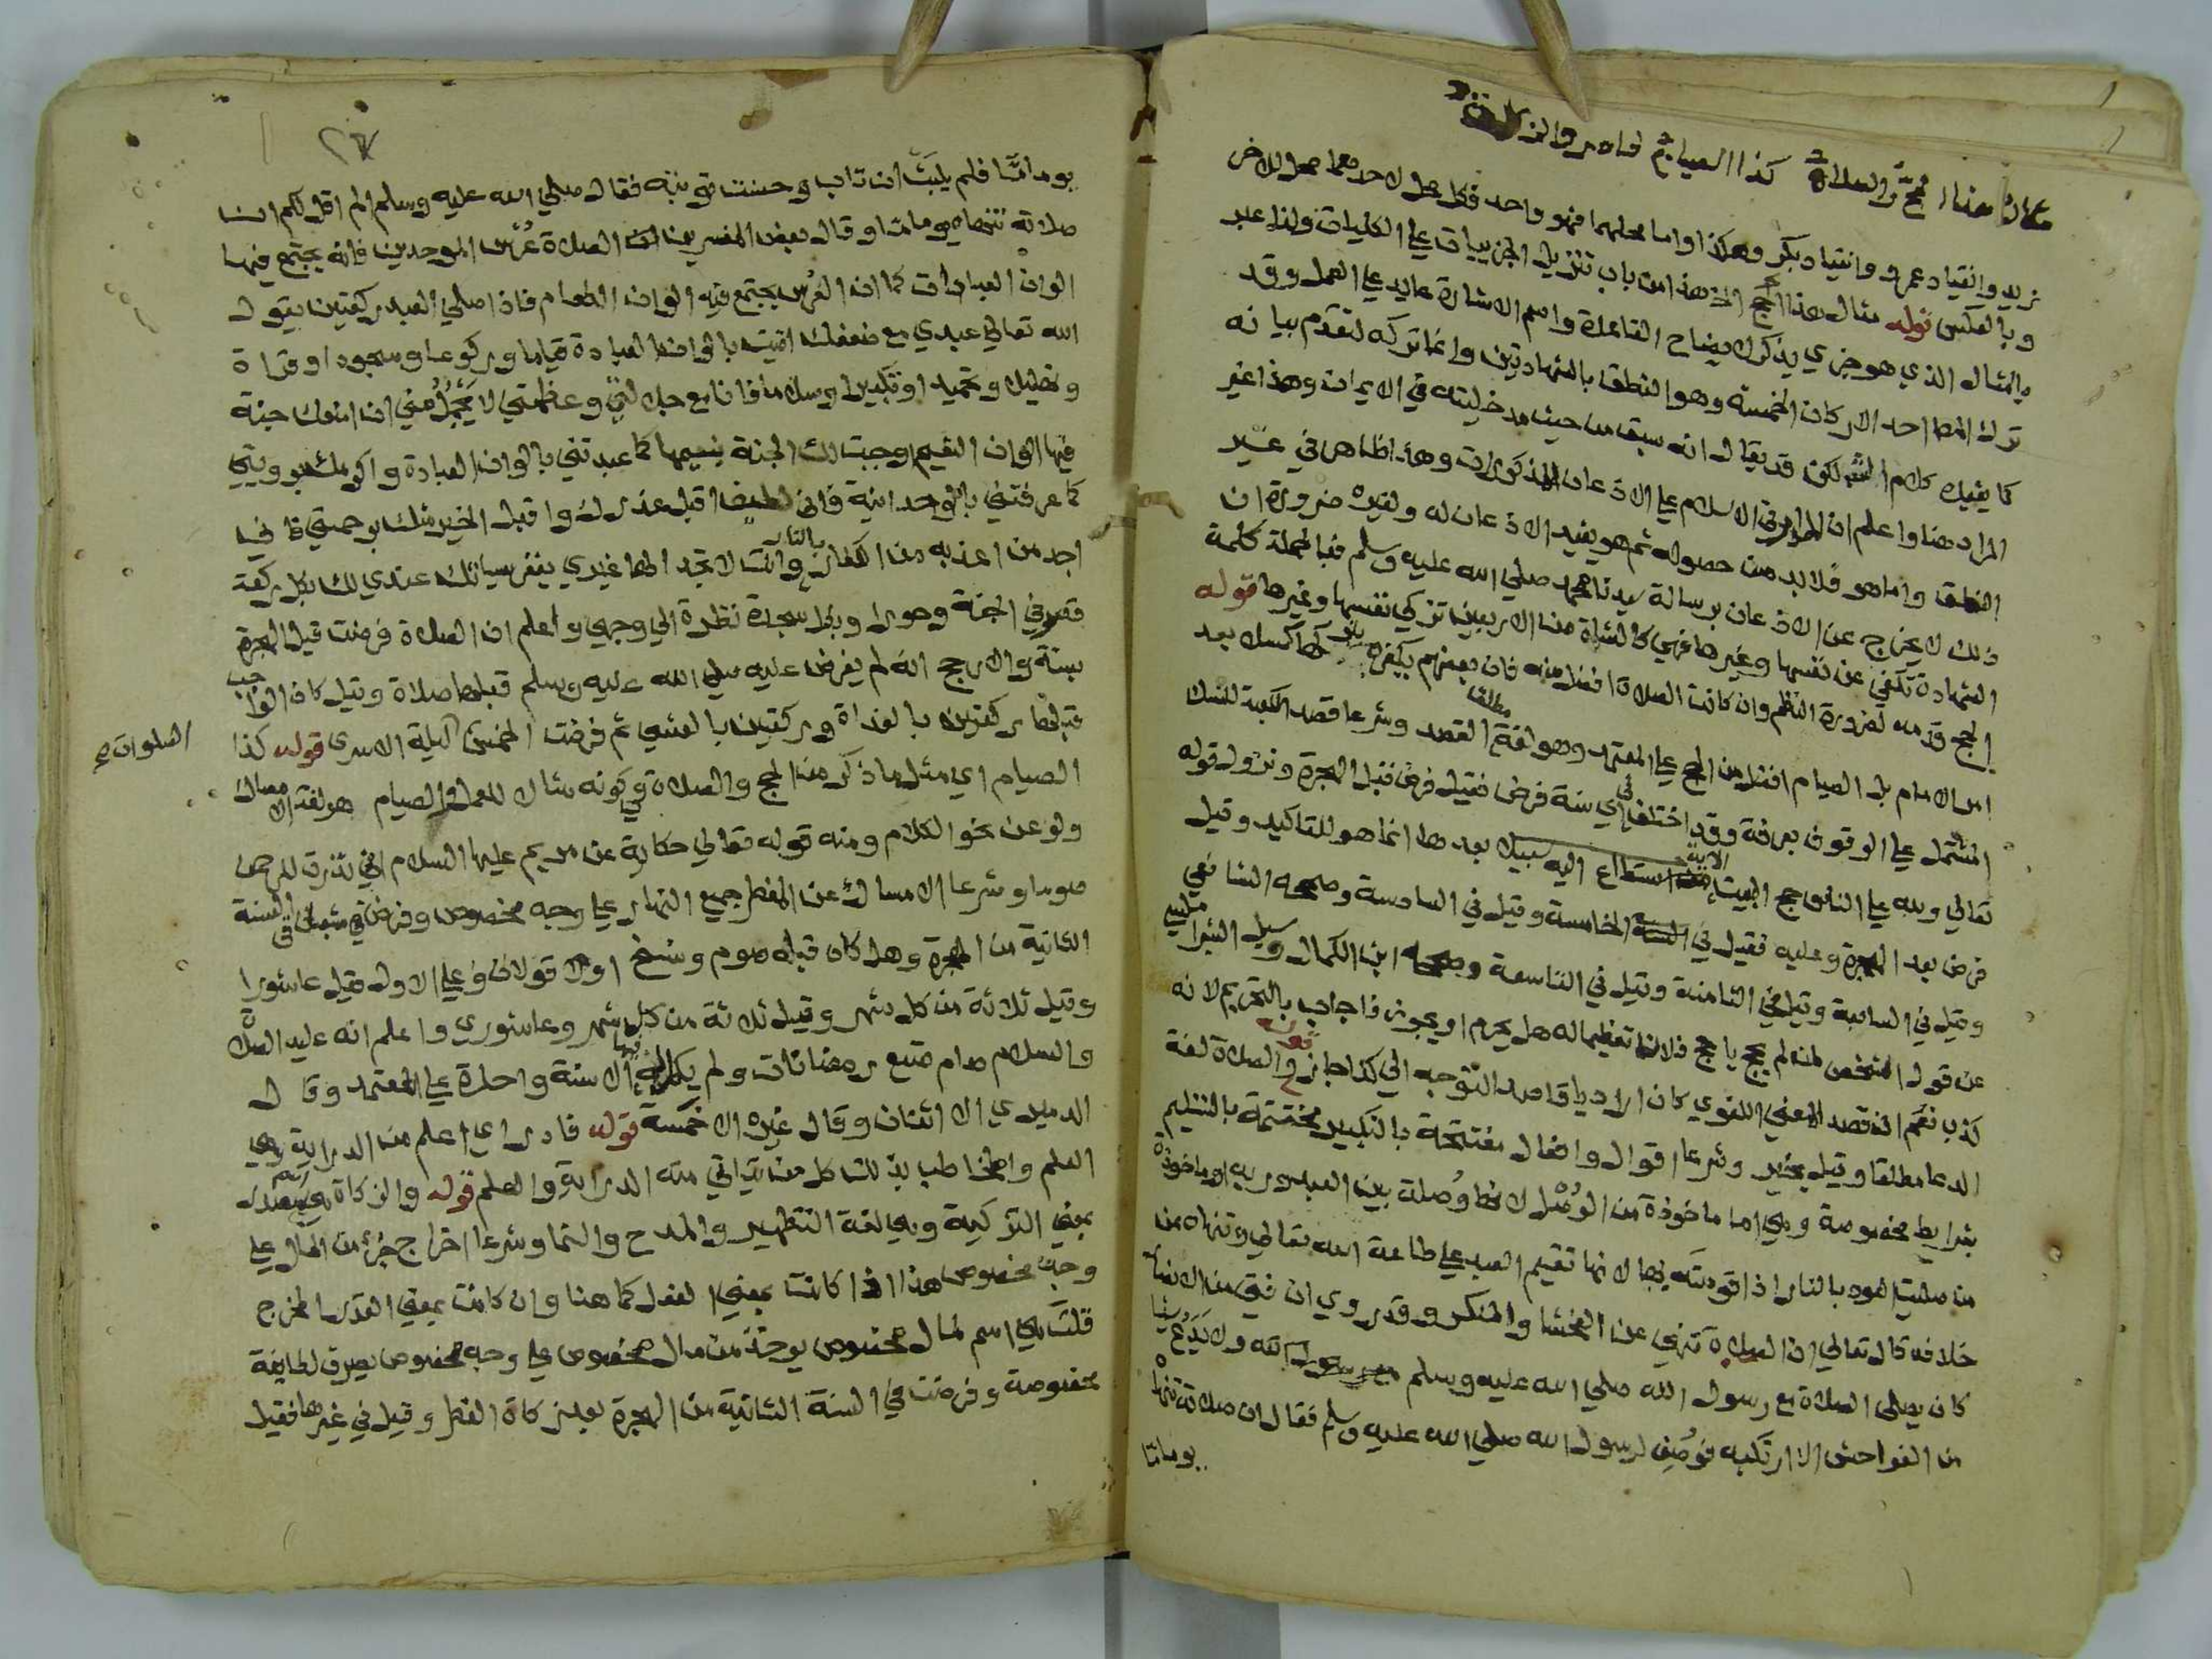 مثال هذا الحج والصلاة كذا الصيام فادر والزكاة
زيد وانقياد عمرو وانقياد بكر وهكذا واما محلهما فهو واحد فكل محل لاحدهما محل للاخر
وبالعكس قوله مثال هذا الحج الخ هذا من باب تنزيل الجزييات على الكليات ولذا عبر
بالمثال الذي هو جزي يذكر لايضاح القاعدة واسم الاشارة عايد على العمل وقد
ترك الناظم احد الاركان الخمسة وهو النطق بالشهادتين وانما تركه لتقدم بيانه
كما يفيده كلام الشـ لكن قد يقال انه سبق من حيث مدخليته في الايمان وهذا غير
المراد هنا واعلم ان المدار في الاسلام على الاذعان للمذكورات وهذا ظاهر في غير
النطق واما هو فلا بد من حصوله ثم هو يفيد الاذعان له ولغيره ضرورة ان
ذلك لا يخرج عن الاذعان برسالة سيدنا محمد صلي الله عليه وسلم فبالجملة كلمة
الشهادة تكفي عن نفسها وغيرها فهي كالشاة من الاربعين تزكي نفسها وغيرها قوله
الحج قدمه لضرورة النظم وان كانت الصلاة افضل منه فان بعضهم يكفر بتركها كسلا بعد
امر الامام بل الصيام افضل من الحج على المعتمد وهو لغة القصد مطلقا وشرعا قصد الكعبة للنسك
المشتمل على الوقوف بعرفة وقد اختلف في اي سنة فرض فقيل فرض قبل الهجرة ونزول قوله
تعالي ولله على الناس حج البيت الاية من استطاع اليه سبيلا بعدها انما هو للتاكيد وقيل
فرض بعد الهجرة وعليه فقيل في السنة الخامسة وقيل في السادسة وصححه الشافعي
وقيل في السابعة وقيل في الثامنة وقيل في التاسعة وصححه ابن الكمال وسيل الشبراملسي
عن قول الشخص لمن لم يحج يا حج فلان تعظيما له هل يحرم او يجوز فاجاب بالتحريم لانه
كذب نعم ان قصد المعني اللغوي كان اراد يا قاصد التوجه الي كذا جاز قوله والصلاة لغة
الدعا مطلقا وقيل بخير وشرعا اقوال وافعال مفتتحة بالتكبير مختتمة بالتسليم
بشرايط مخصوصة وهي اما ماخوذة من الوصل لانها وصلة بين العبد وربه او ماخوذة
من صليت العود بالنار اذا قومته بها لانها تقيم العبد على طاعة الله تعالي وتنهاه عن
خلافه قال تعالي ان الصلاة تنهي عن الفحشا والمنكر وقد روي ان فتي من الانصار
كان يصلي الصلاة مع رسول الله صلي الله عليه وسلم ولا يدع شيا
من الفواحش الا ارتكبه فوصف لرسول الله صلي الله عليه وسلم فقال ان صلاته تنهاه
يوما ما
يوما مّا فلم يلبث ان تاب وحسنت توبته فقال صلي الله عليه وسلم الم اقل لكم ان
صلاته تنهاه يوما ما وقال بعض المفسرين ان الصلاة عرس الموحدين فانه يجتمع فيها
الوان العبادات كما ان العرس يجتمع فيه الوان الطعام فاذا صلي العبد ركعتين يقول
الله تعالي عبدي مع ضعفك اتيت بالوان العبادة قياما وركوعا وسجودا وقراة
وتهليلا وتحميدا وتكبيرا وسلاما فانا مع جلالتي وعظمتي لا يجمل مني ان امنعك جنة
فيها الوان النعيم اوجبت لك الجنة بنعيمها كما عبدتني بالوان العبادة واكرمك برويتي
كما عرفتني بالوحدانية فاني لطيف اقبل عذرك واقبل الخير منك برحمتي فاني
اجد من اعذبه من الكفار بالنار وانت لا تجد الها غيري يغفر سياتك عندي لك بكل ركعة
قصر في الجنة وحورا وبكل سجدة نظرة الي وجهي واعلم ان الصلاة فرضت قبل الهجرة
بسنة والارجح انه لم يفرض عليه صلي الله عليه وسلم قبلها صلاة وقيل كان الواجب
قبلها ركعتين بالغداة وركعتين بالعشي ثم فرضت الخمس ليلة الاسرى قوله كذا
الصلوات ع
الصيام اي مثل ما ذكر من الحج والصلاة في كونه مثال للعمل والصيام هو لغة الامساك
ولو عن نحو الكلام ومنه قوله تعالي حكاية عن مريم عليها السلام اني نذرت للرحمن
صوما وشرعا الامساك عن المفطر جميع النهار على وجه مخصوص وفرض في شعبان في السنة
الثانية من الهجرة وهل كان قبله صوم ونسخ اولا قولان وعلى الاول قيل عاشورا
وقيل ثلاثة من كل شهر وقيل ثلاثة من كل شهر وعاشوري واعلم انه عليه الصلاة
والسلام صام تسع رمضانات ولم يكمل فيها الا سنة واحدة على المعتمد وقال
الدميري الا اثنان وقال غيره الا خمسة قوله فادر اي اعلم من الدراية وهي
العلم والمخاطب بذلك كل من يتاتي منه الدراية والعلم قوله والزكاة هي اسم مصدر
بمعني التزكية وهي لغة التطهير والمدح والنما وشرعا اخراج جزء من المال على
وجه مخصوص هذا اذا كانت بمعني الفعل كما هنا وان كانت بمعني القدر المخرج
قلت هي اسم لمال مخصوص يوخذ من مال مخصوص على وجه مخصوص يصرف لطايفة
مخصوصة وفرضت في السنة الثانية من الهجرة بعد زكاة الفطر وقيل في غيرها فقيل